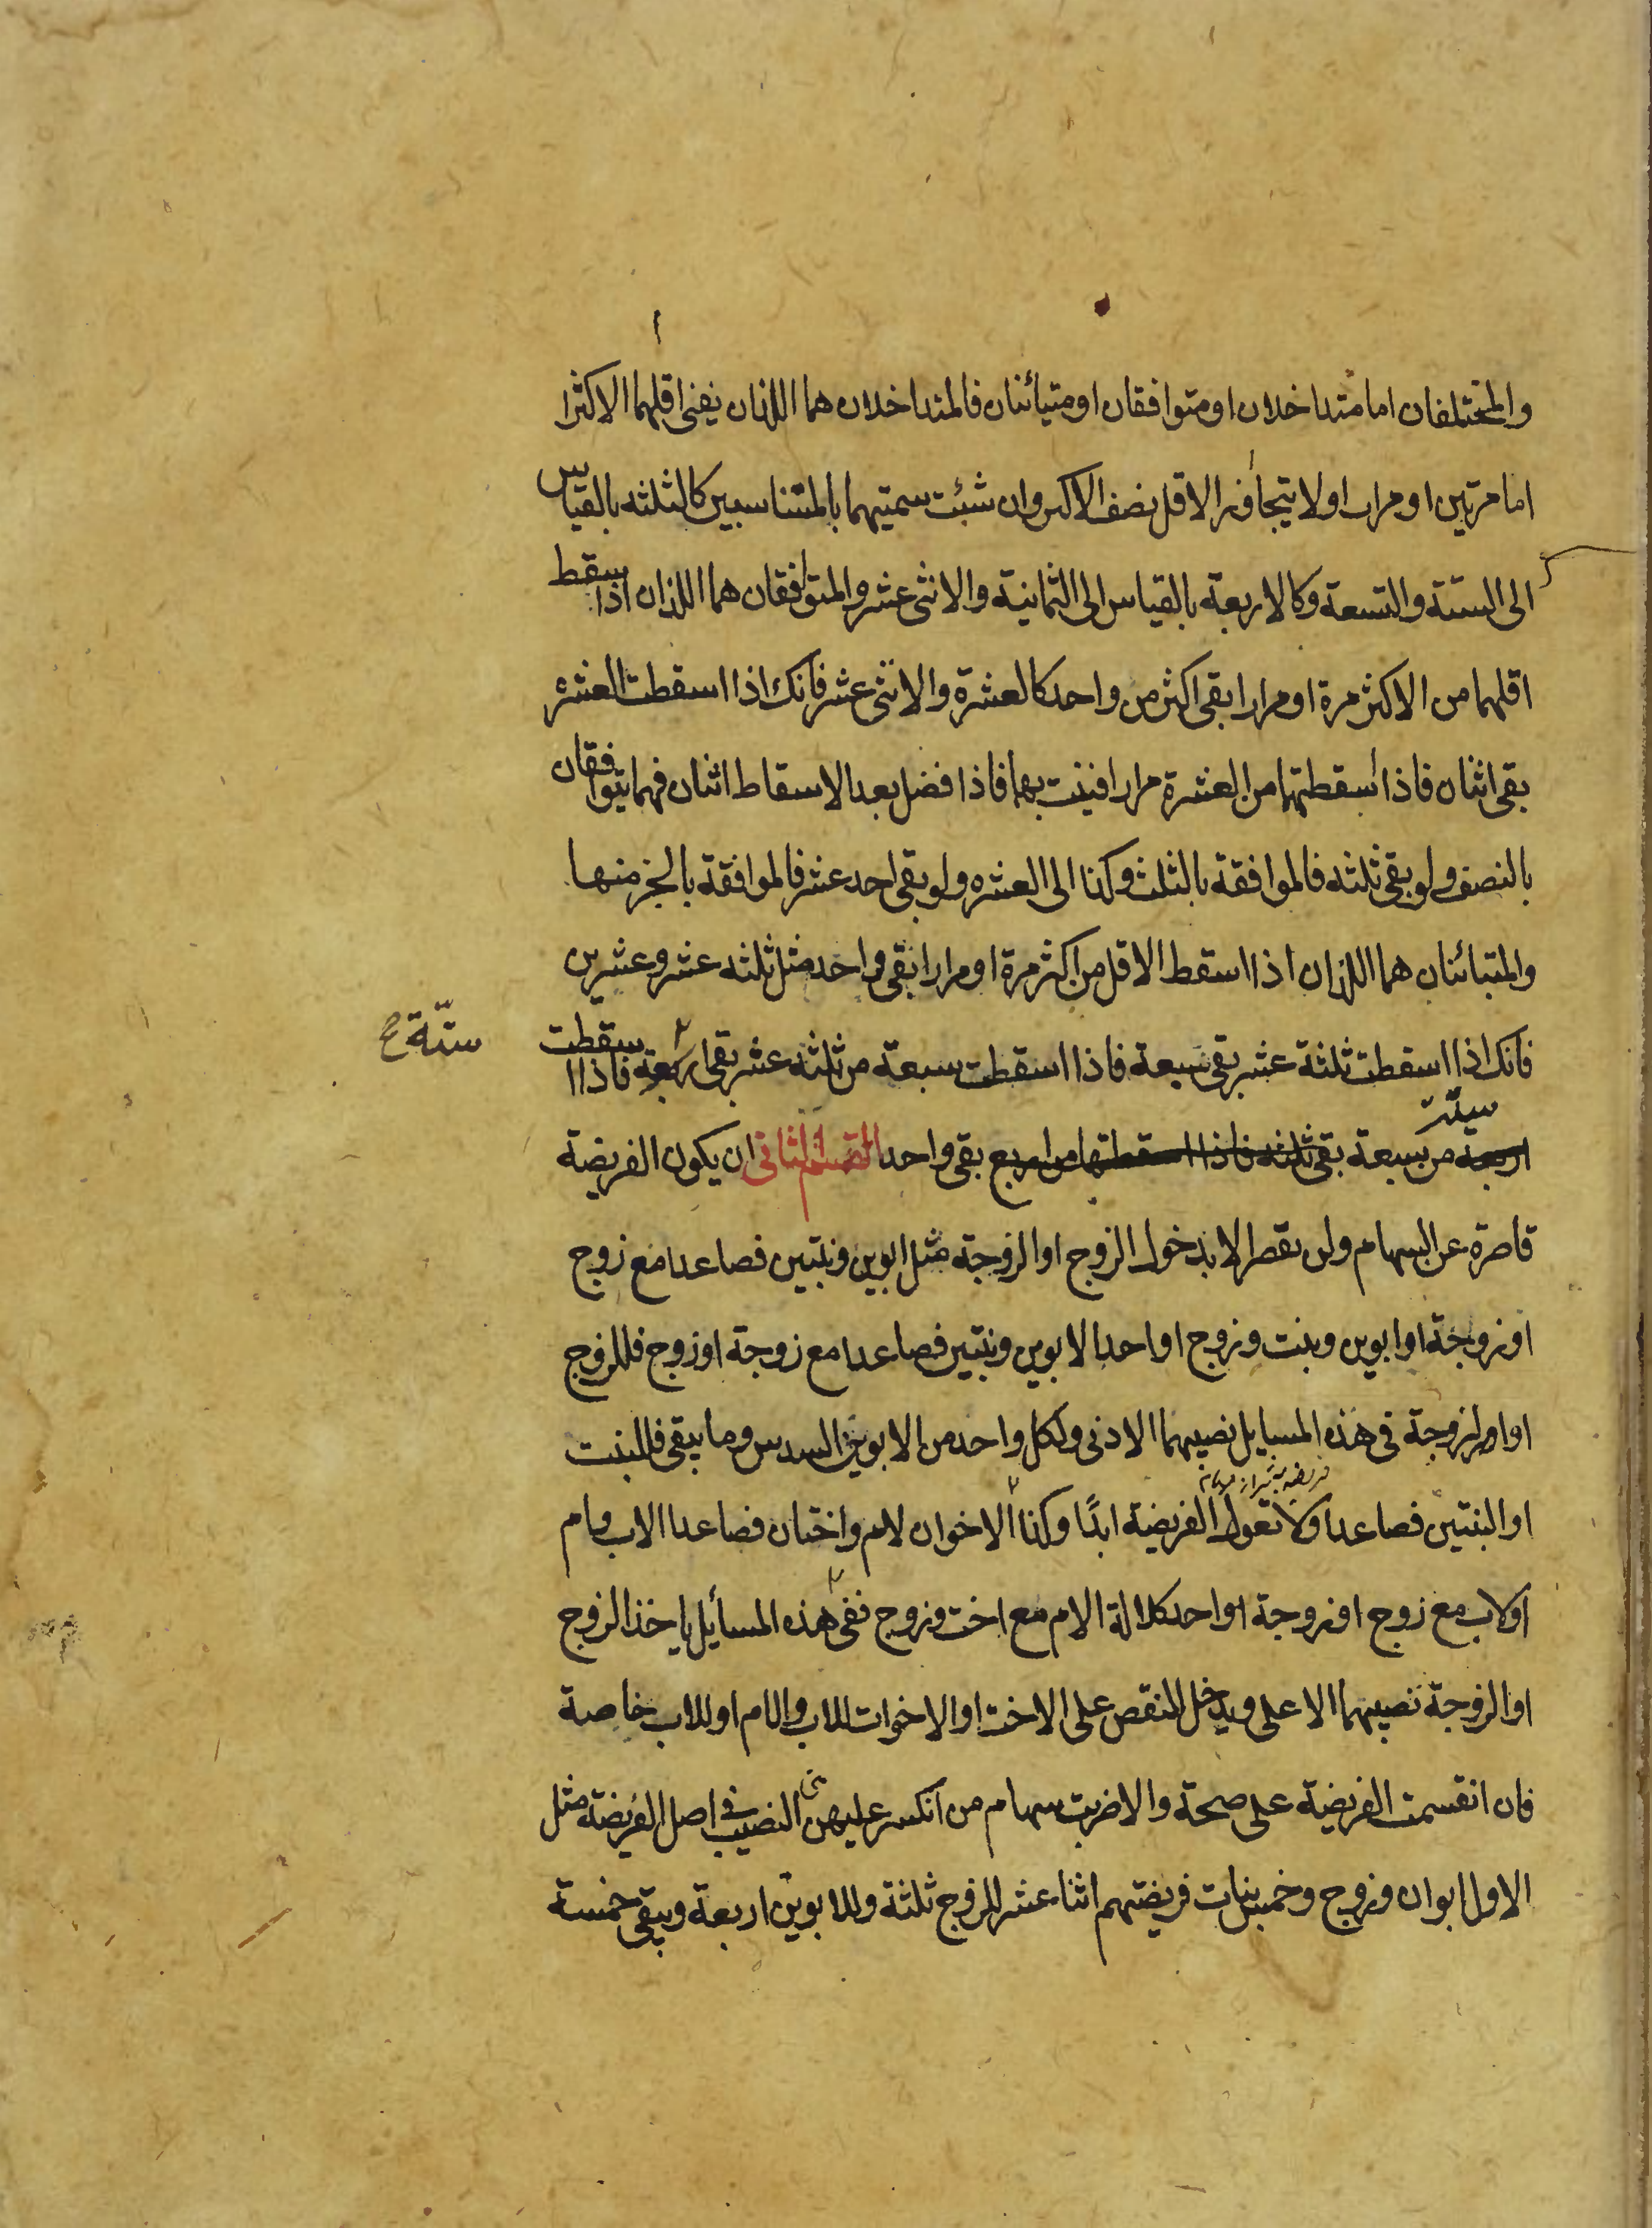 والمختلفان اما متداخلان او متوافقان او متبائنان فالمتداخلان هما اللذان يفنى اقلهما الاكثر ا
اما مرتين او مرارا ولا يتجاوز الاقل نصف الاكثر وان شئت سميتهما بالمتناسبين كالثلثه بالقياس
الى الستة والتسعة وكالاربعة بالقياس الى الثمانية والاثنى عشر والمتوافقان هما اللذان اذا اسقط
اقلهما من الاكثر مرة او مرارا بقى اكثر من واحد كالعشرة والاثنى عشر فانك اذا اسقطت العشره
بقى اثنان فاذا اسقطتهما من العشرة مرارا فنيت بهما فاذا فضل بعد الاسقاط اثنان فهما يتوافقان
بالنصف ولو بقى ثلثه فالموافقة بالثلث وكذا الى العشره ولو بقى احد عشر فالموافقة بالجزء منها
والمتبائنان هما اللذان اذا اسقط الاقل من اكثر مرة او مرارا بقى واحد مثل ثلثه عشر وعشرين
فانك اذا اسقطت ثلثة عشر بقى سبعة فاذا اسقطت سبعة من ثلثه عشر بقى اربعة فاذا اسقطت
ستّة ح
ستّة
اربعة من سبعة بقى ثلثه فاذا اسقطتها من اربع بقى واحد القسم الثانى ان يكون الفريضة
قاصرة عن السهام ولن يقصر الا بدخول الزوج او الزوجة مثل ابوين وبنتين فصاعدا مع زوج
او زوجة او ابوين وبنت وزوج او احد الابوين وبنتين فصاعدا مع زوجة او زوج فللزوج
او الزوجة فى هذه المسايل نصيبهما الادنى ولكل واحد من الابوين السدس وما يبقى فللبنت
او البنتين فصاعدا ولا تعول الفريضة ابدًا وكذا الاخوان لام واختان فصاعدا الاب وام
او لاب مع زوج او زوجة او احد كلالة الام مع اخت وزوج ففى هذه المسائل ياخذ الزوج
او الزوجة نصيبهما الاعلى ويدخل النقص على الاخت او الاخوات للاب والام او للاب خاصة
فان انقسمت الفريضة على صحة والا ضربت سهام من انكسر عليهن النصيب فى اصل الفريضة مثل
الاول ابوان وزوج وخمس بنات فريضتهم اثنا عشر للزوج ثلثة وللابوين اربعة ويبقى خمسة